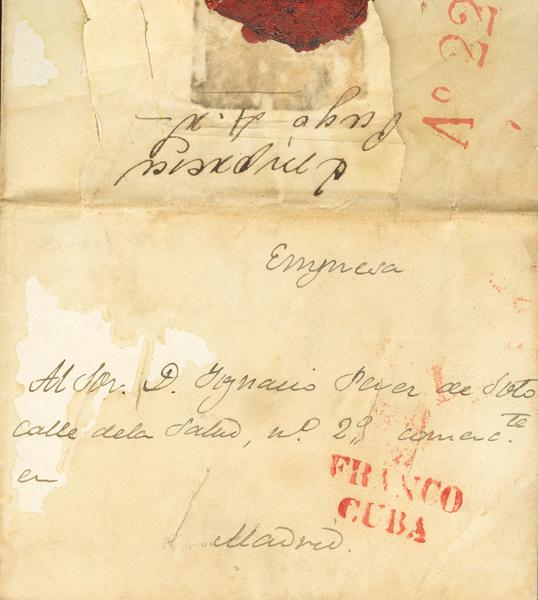 Nº 22
Empresa
Pagó 4 r
Empresa
Al Sor. D. Ygnacio Perez de Soto
calle dela Salud, nº 2, comerc.te
en
FRANCO
CUBA
Madrid.